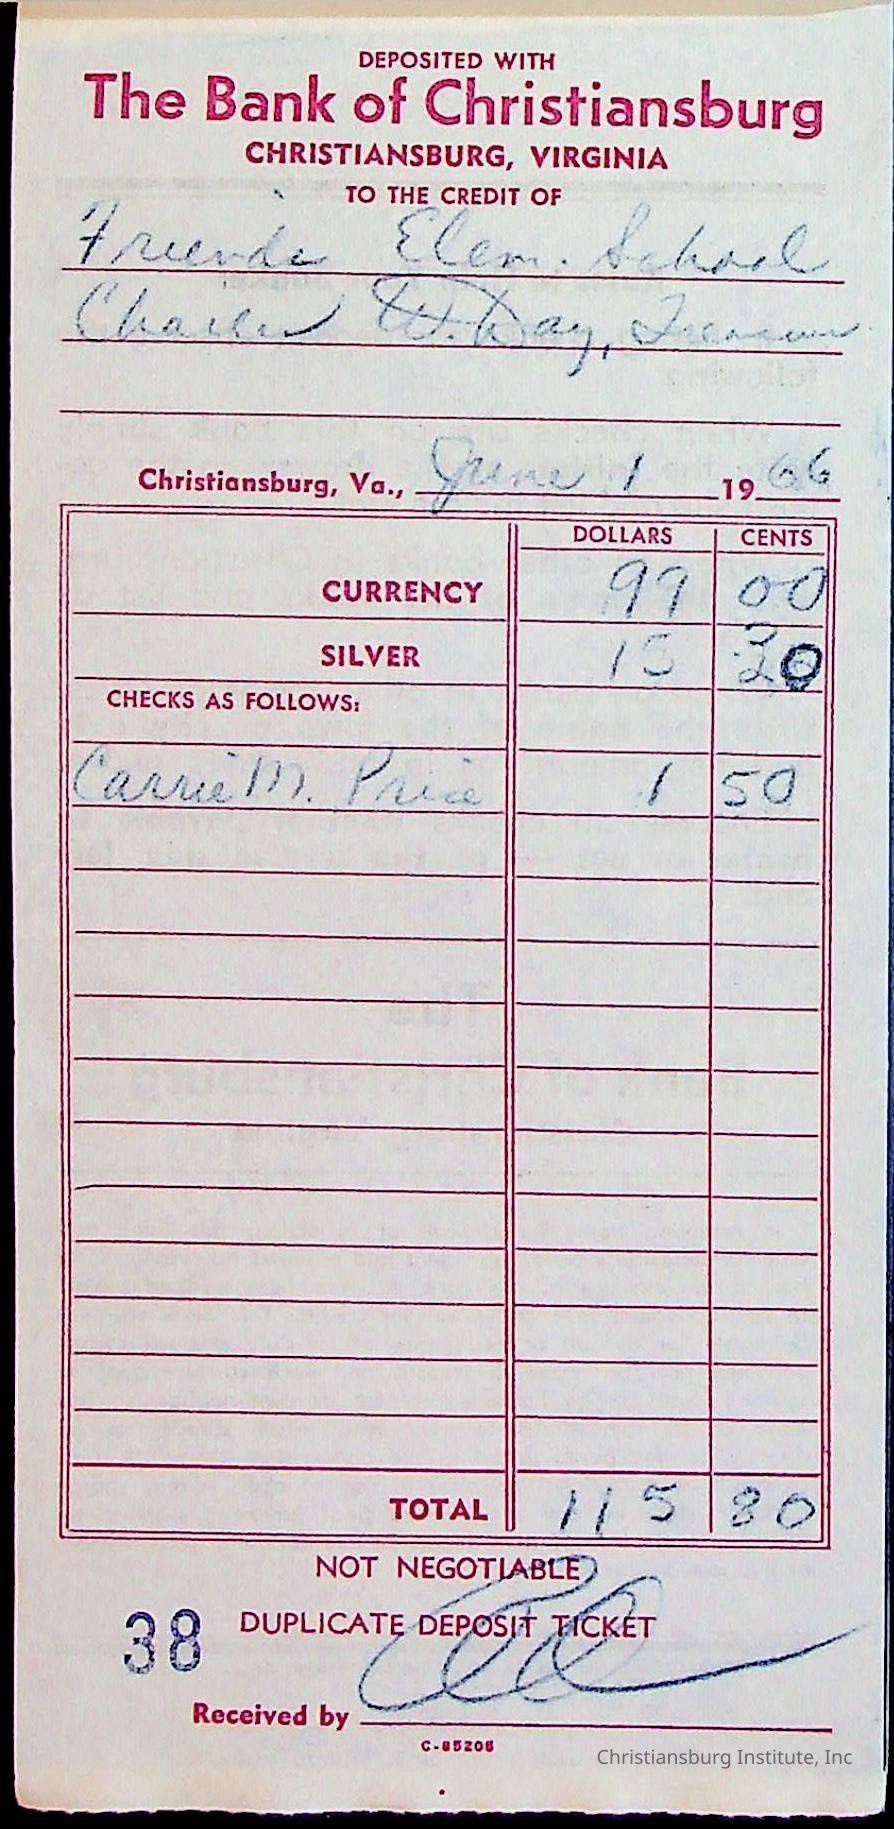 DEPOSITED WITH
The Bank of Christiansburg
CHRISTIANSBURG, VIRGINIA
TO THE CREDIT OF
Friends Elem. School
Charles W. Day, Treasurer
Christiansburg, Va., June 1 1966
DOLLARS CENTS
CURRENCY 99 00
SILVER 15 30
CHECKS AS FOLLOWS:
Carrie M. Price 1 50
TOTAL 115 80
NOT NEGOTIABLE
38 DUPLICATE DEPOSIT TICKET
Received by
C-85206
Christiansburg Institute, Inc